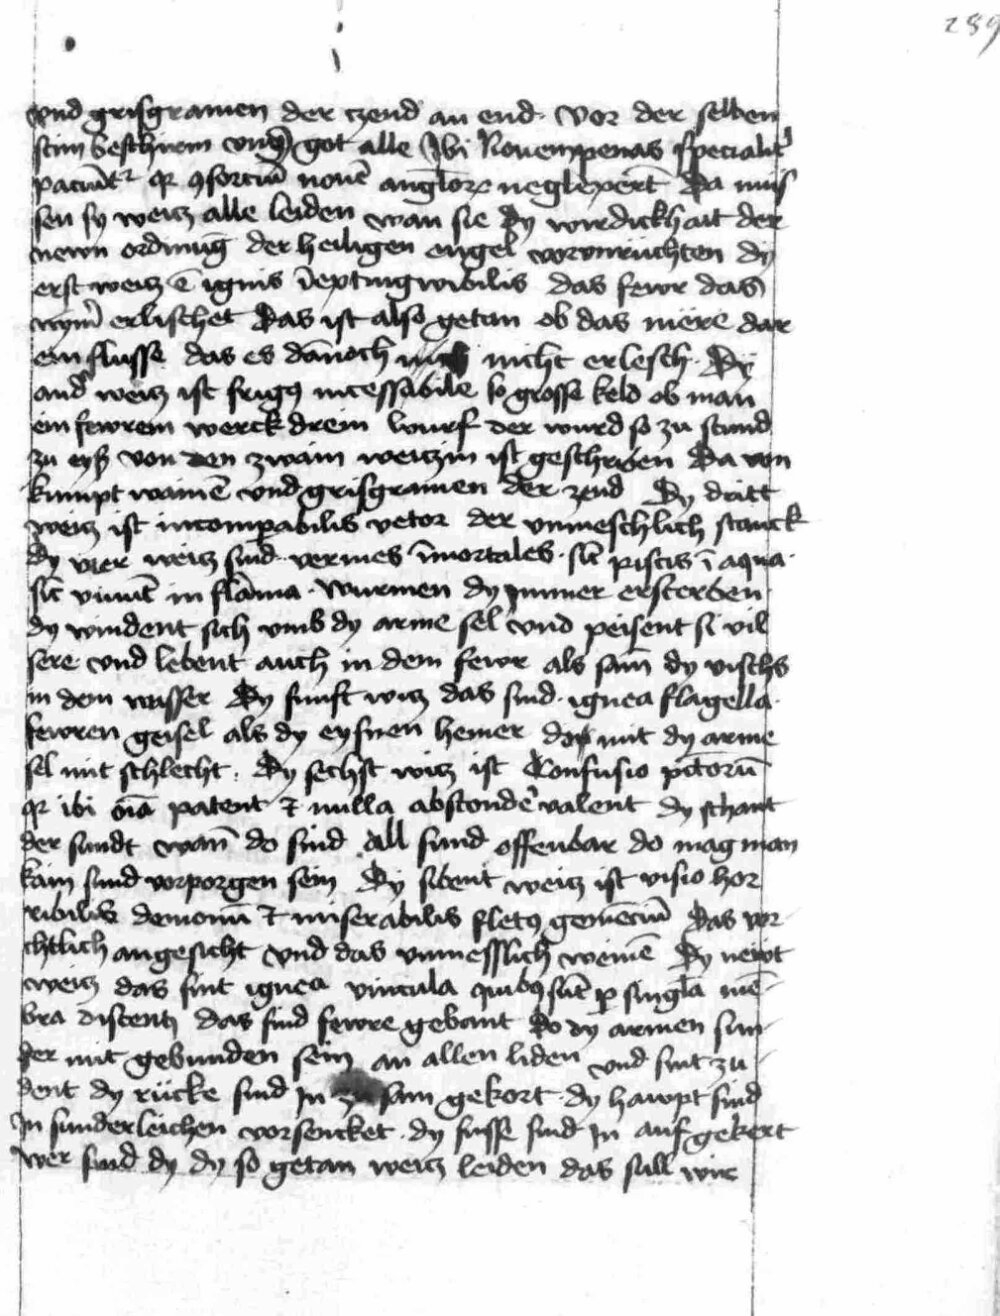 289
vnd grisgramen der czend an end. Vor der selben
stim beschirm vns got alle Ibi Nouempenas specialit᷑
paciūt᷑ qꝛ ꝯsorciū nouē angłoꝝ neglexerūt Da mus
sen sy weitz alle leiden wan sie dy wirdickhait der
newn ordnūg der heiligen engel vorvnruchten dy
erst weitz ē ignis īextingwibilis das fewr das
nym̄ erlischet Das ist also getan ob das mere dar
ein flusse das es dānoch nicht erlesch. Dy
and᷑ weitz ist frigꝰ incessabile so grosse keld ob man
ein fewrein werck drein wurf der wurd so zu stund
zu eyß von den zwain weitzin ist geschriben Da von
kumpt wainē vnd grisgramen der zend Dy dritt
weitz ist incomparabilis vetor der vnmeschlich stanck
dy vier weitz sind. vermes īmortales. sic̄ piscis ī aqua.
sic̄ viuūt in flāma. Wurmen dy nymer ersterben
dy windent sich vmb dy arme sel vnd peisent si vil
sere vnd lebent auch in dem fewr als sam dy vischs
in dem wasser Dy funft witz das sind. ignea flagella.
fewren geisel als dy eysnen hemer do mit dy arme
sel mit schlecht. Dy sechst witz ist Confusio pc̄torū
qꝛ ibi oīa patent ⁊ nulla abscondē valent dy schant
der sundt wan̄ do sind all sund offenbar do mag man
kain sund vorporgen sein Dy sibent weitz ist visio hor
ribilis demonū ⁊ miserabilis fletꝰ gemēciū Das vor-
chtlich angesicht vnd das vnmesslich weinē Dy newt
weitz das sint ignea vincula quibꝰ sūt ꝑ singla mē-
bra das sind fewre gebant Do dy armen sun-
der mit gebunden sein an allen liden vnd sint zu-
dent dy rücke sind In zu sam gekort. dy hawpt sind
In sunderleichen vorsencket. dy fusse sind In auf gekert
wer sind dy dy so getan weitz leiden das sull wir